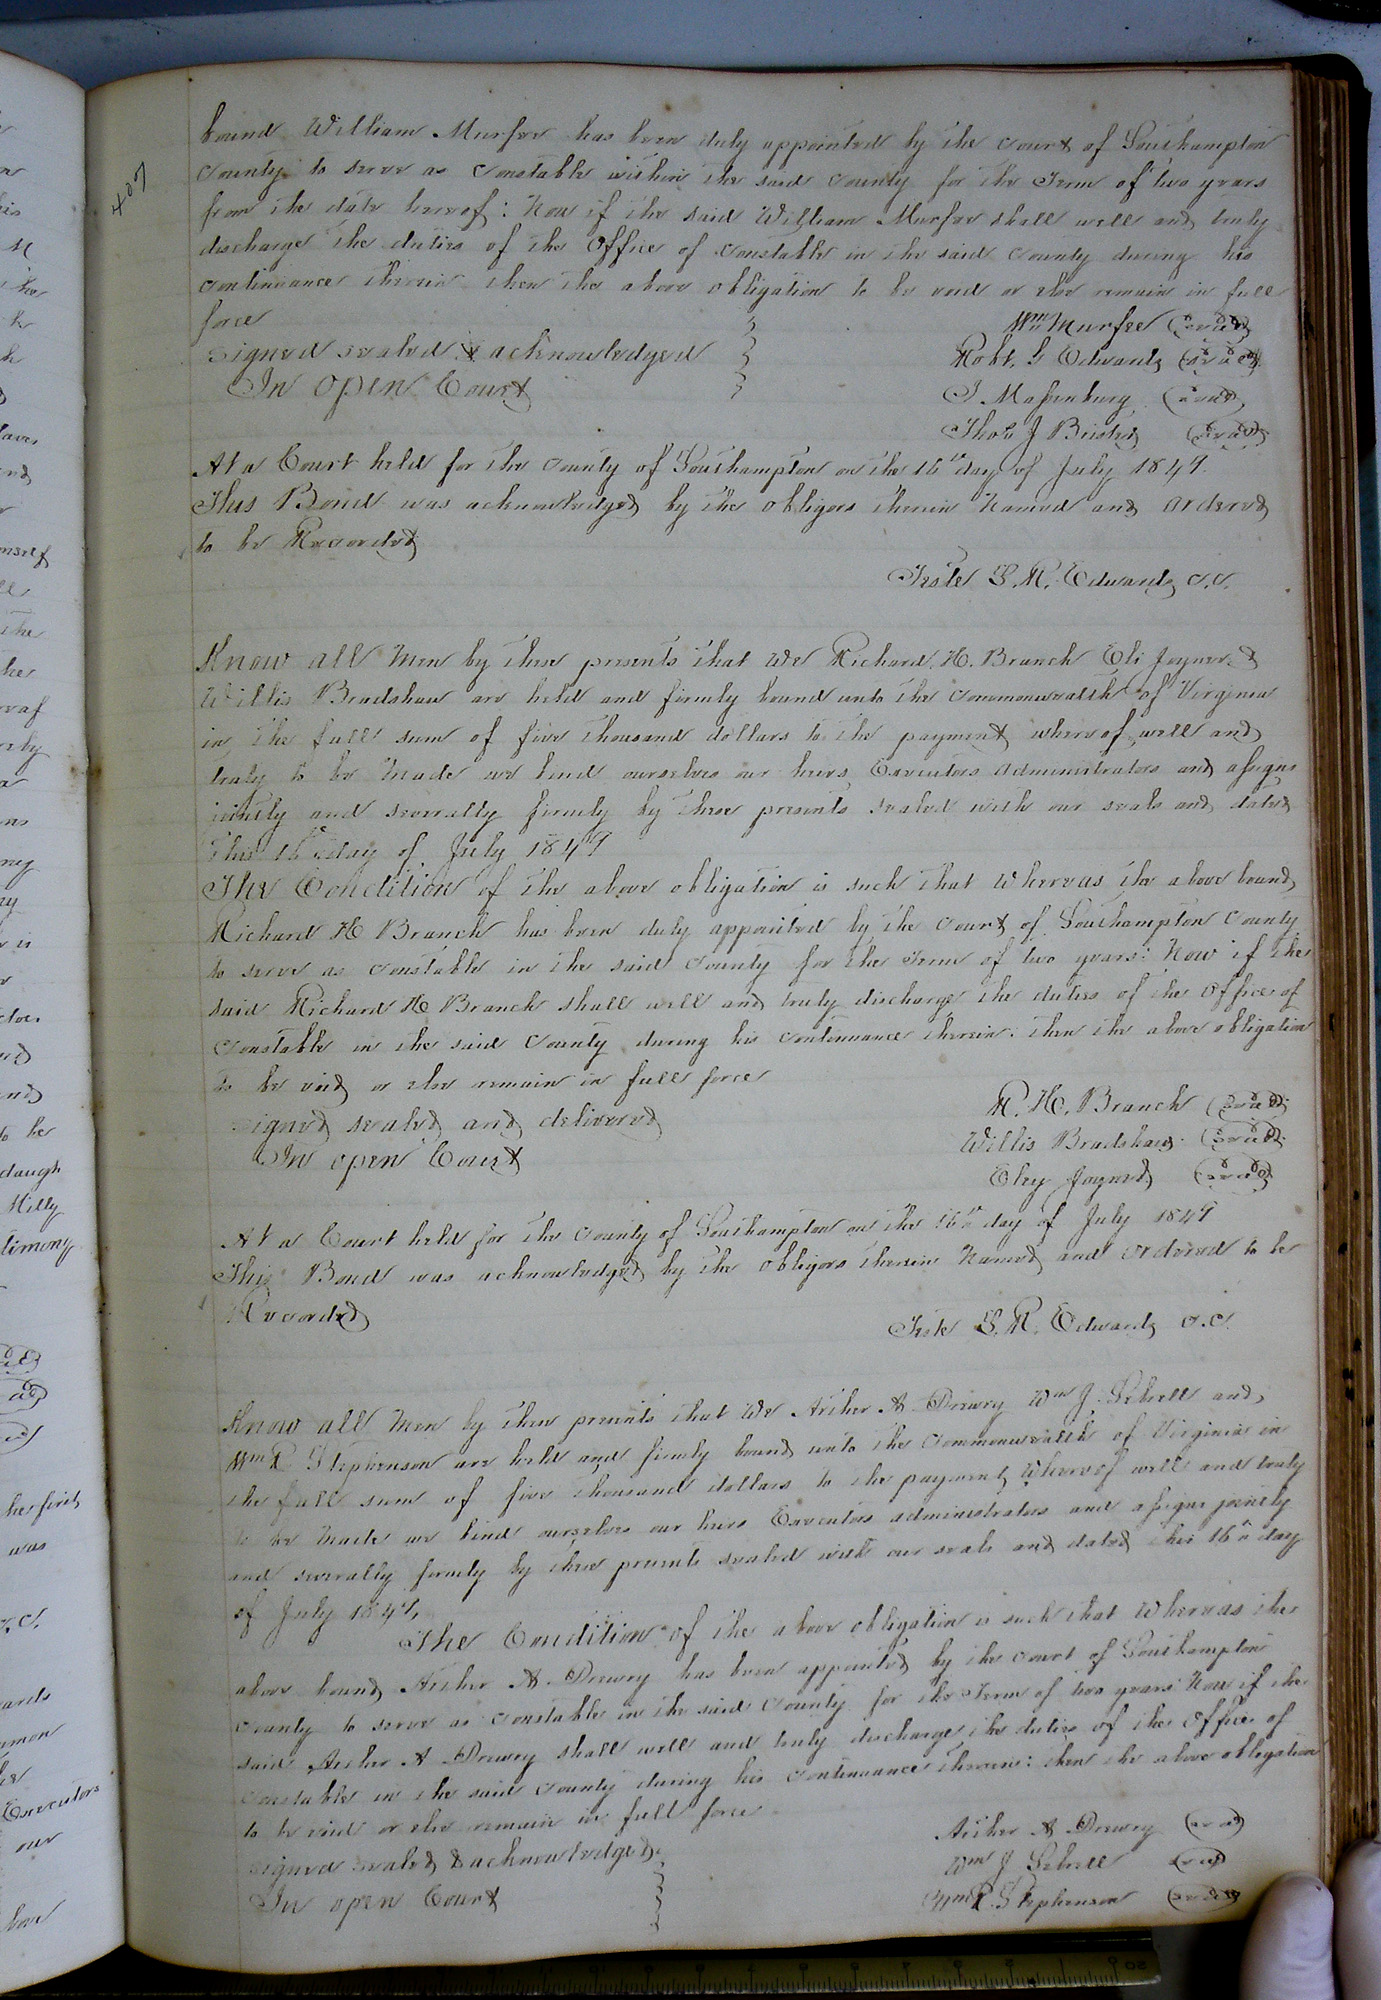 407
bound William Murfee has been duly appointed by the Court of Southampton
County to serve as Constable within the said County for the Term of two years
from the date hereof: Now if the said William Murfee shall well and truly
discharge the duties of the Office of Constable in the said County during his
continuance therein then the above obligation to be void or else remain in full
force
Wm Murfee (Seal)
Signed sealed & acknowledged
Robt. G Edwards (Seal)
In open Court
(Seal)
Thos J (Seal)
At a Court held for the County of Southampton on the 16th day of July 1849.
This Bond was acknowledged by the obligors therein Named and ordered
to be Recorded
Teste L. R. Edwards C.C.
Know all Men by these presents that We Richard. H. Branch Eli Joyner &
Willis Bradshaw are held and firmly bound unto the Commonwealth of Virginia
in the full sum of five thousand dollars to the payment whereof well and
truly to be Made we bind ourselves our heirs Executors administrators and assigns
jointly and severally firmly by these presents sealed with our seals and dated
This 16th day of July 1849
The Condition of the above obligation is such that Whereas the above bound
Richard H Branch has been duly appointed by the Court of Southampton County
to serve as Constable in the said County for the Term of two years: Now if the
said Richard H Branch shall well and truly discharge the duties of the Office of
Constable in the said County during his continuance therein: then the above obligation
to be void or else remain in full force
R. H. Branch (Seal)
Signed sealed and delivered
Willis Bradshaw (Seal)
In open Court
Eley Joyner (Seal)
At a Court held for the County of Southampton on the 16th day of July 1849
This Bond was acknowledged by the obligors therein Named and ordered to be
Recorded
Teste L. R. Edwards C.C.
Know all Men by these presents that We Archer A Drewry Wm J. Sebrell and
Wm R Stephenson are held and firmly bound unto the Commonwealth of Virginia in
the full sum of five thousand dollars to the payment Whereof well and truly
to be Made we bind ourselves our heirs Executors administrators and assigns jointly
and severally firmly by these presents sealed with our seals and dated this 16th day
of July 1849.
The Condition of the above obligation is such that Whereas the
above bound Archer A. Drewry has been appointed by the Court of Southampton
County to serve as Constable in the said County for the Term of two years Now if the
said Archer A Drewry shall well and truly discharge the duties of the Office of
Constable in the said County during his continuance therein: then the above obligation
to be void or else remain in full force
Archer A Drewry (Seal)
Signed sealed & acknowledged
Wm J Sebrell (Seal)
In open Court
Wm R. Stephenson (Seal)